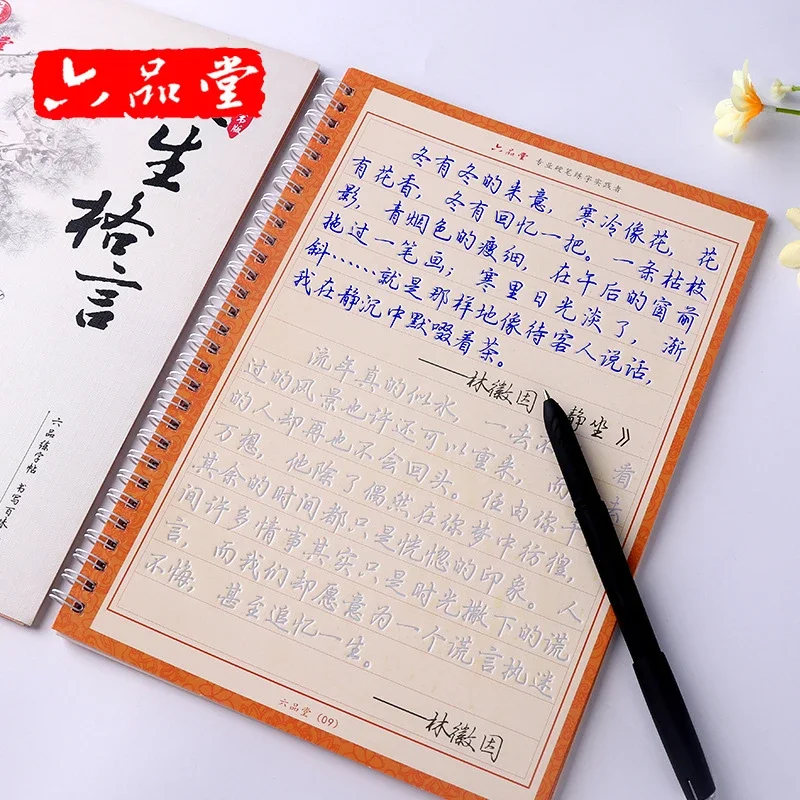 六品堂
生格言
六品练字帖 书写百体
六品堂 专业硬笔练字实践者
冬有冬的来意，寒冷像花，花
有花香，冬有回忆一把。一条枯枝
影，青烟色的瘦细，在午后的窗前
拖过一笔画；寒里日光淡了，渐
斜……就是那样地像待客人说话，
我在静沉中默啜着茶。
——林徽因 静坐》
流年真的似水，一去不 看
过的风景也许还可以重来，而 去
的人却再也不会回头。任由你千
万想，他除了偶然在你梦中彷徨，
其余的时间都只是恍惚的印象。人
间许多情事其实只是时光撒下的谎
言，而我们却愿意为一个谎言执迷
不悔，甚至追忆一生。
——林徽因
六品堂（09）